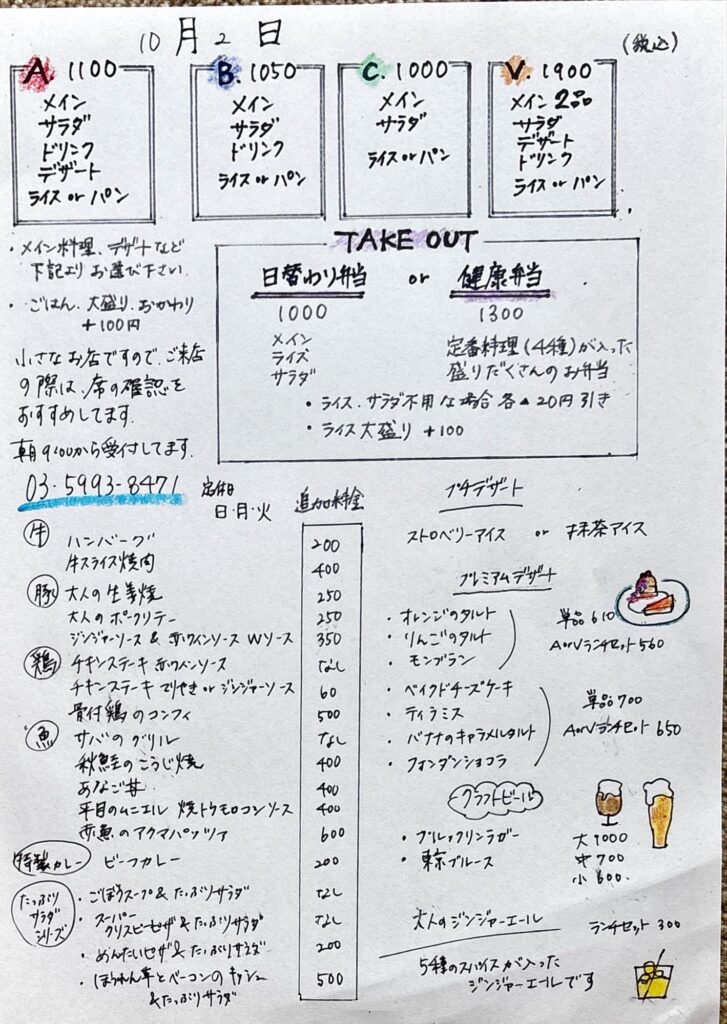 10月2日
(税込)
A. 1100
メイン
サラダ
ドリンク
デザート
ライス or パン
B. 1050
メイン
サラダ
ドリンク
ライス or パン
C. 1000
メイン
サラダ
ライス or パン
V. 1900
メイン 2品
サラダ
デザート
ドリンク
ライス or パン
・メイン料理、デザートなど
下記よりお選び下さい
・ごはん、大盛り、おかわり
+100円
小さなお店ですので、ご来店
の際は、席の確認を
おすすめしてます。
朝9:00から受付してます。
03-5993-8471
定休日
日・月・火
TAKE OUT
日替わり弁当 or 健康弁当
1000
メイン
ライス
サラダ
1300
定番料理(4種)が入った
盛りだくさんのお弁当
・ライス、サラダ不用な場合 各▲20円引き
・ライス大盛り +100
追加料金
牛
ハンバーグ 200
牛スライス焼肉 400
豚
大人の生姜焼 250
大人のポークソテー 250
ジンジャーソース & 赤ワインソース Wソース 350
鶏
チキンステーキ 赤ワインソース なし
チキンステーキ てりやき or ジンジャーソース 60
骨付鶏のコンフィ 500
魚
サバのグリル なし
秋鮭のこうじ焼 400
あなご丼 400
平目のムニエル 焼トウモロコシソース 400
赤魚のアクアパッツァ 600
特製カレー
ビーフカレー 200
たっぷり
サラダ
シリーズ
・ごぼうスープ&たっぷりサラダ なし
・スーパー
クリスピーピザ&たっぷりサラダ なし
・めんたいピザ&たっぷりサラダ 200
・ほうれん草とベーコンのキッシュ
&たっぷりサラダ 500
プチデザート
ストロベリーアイス or 抹茶アイス
プレミアムデザート
・オレンジのタルト
・りんごのタルト
・モンブラン
単品 610
AorVランチセット 560
・ベイクドチーズケーキ
・ティラミス
・バナナのキャラメルタルト
・フォンダンショコラ
単品 700
AorVランチセット 650
クラフトビール
・ブルックリンラガー
・東京ブルース
大 1000
中 700
小 600
大人のジンジャーエール
ランチセット 300
5種のスパイスが入った
ジンジャーエールです